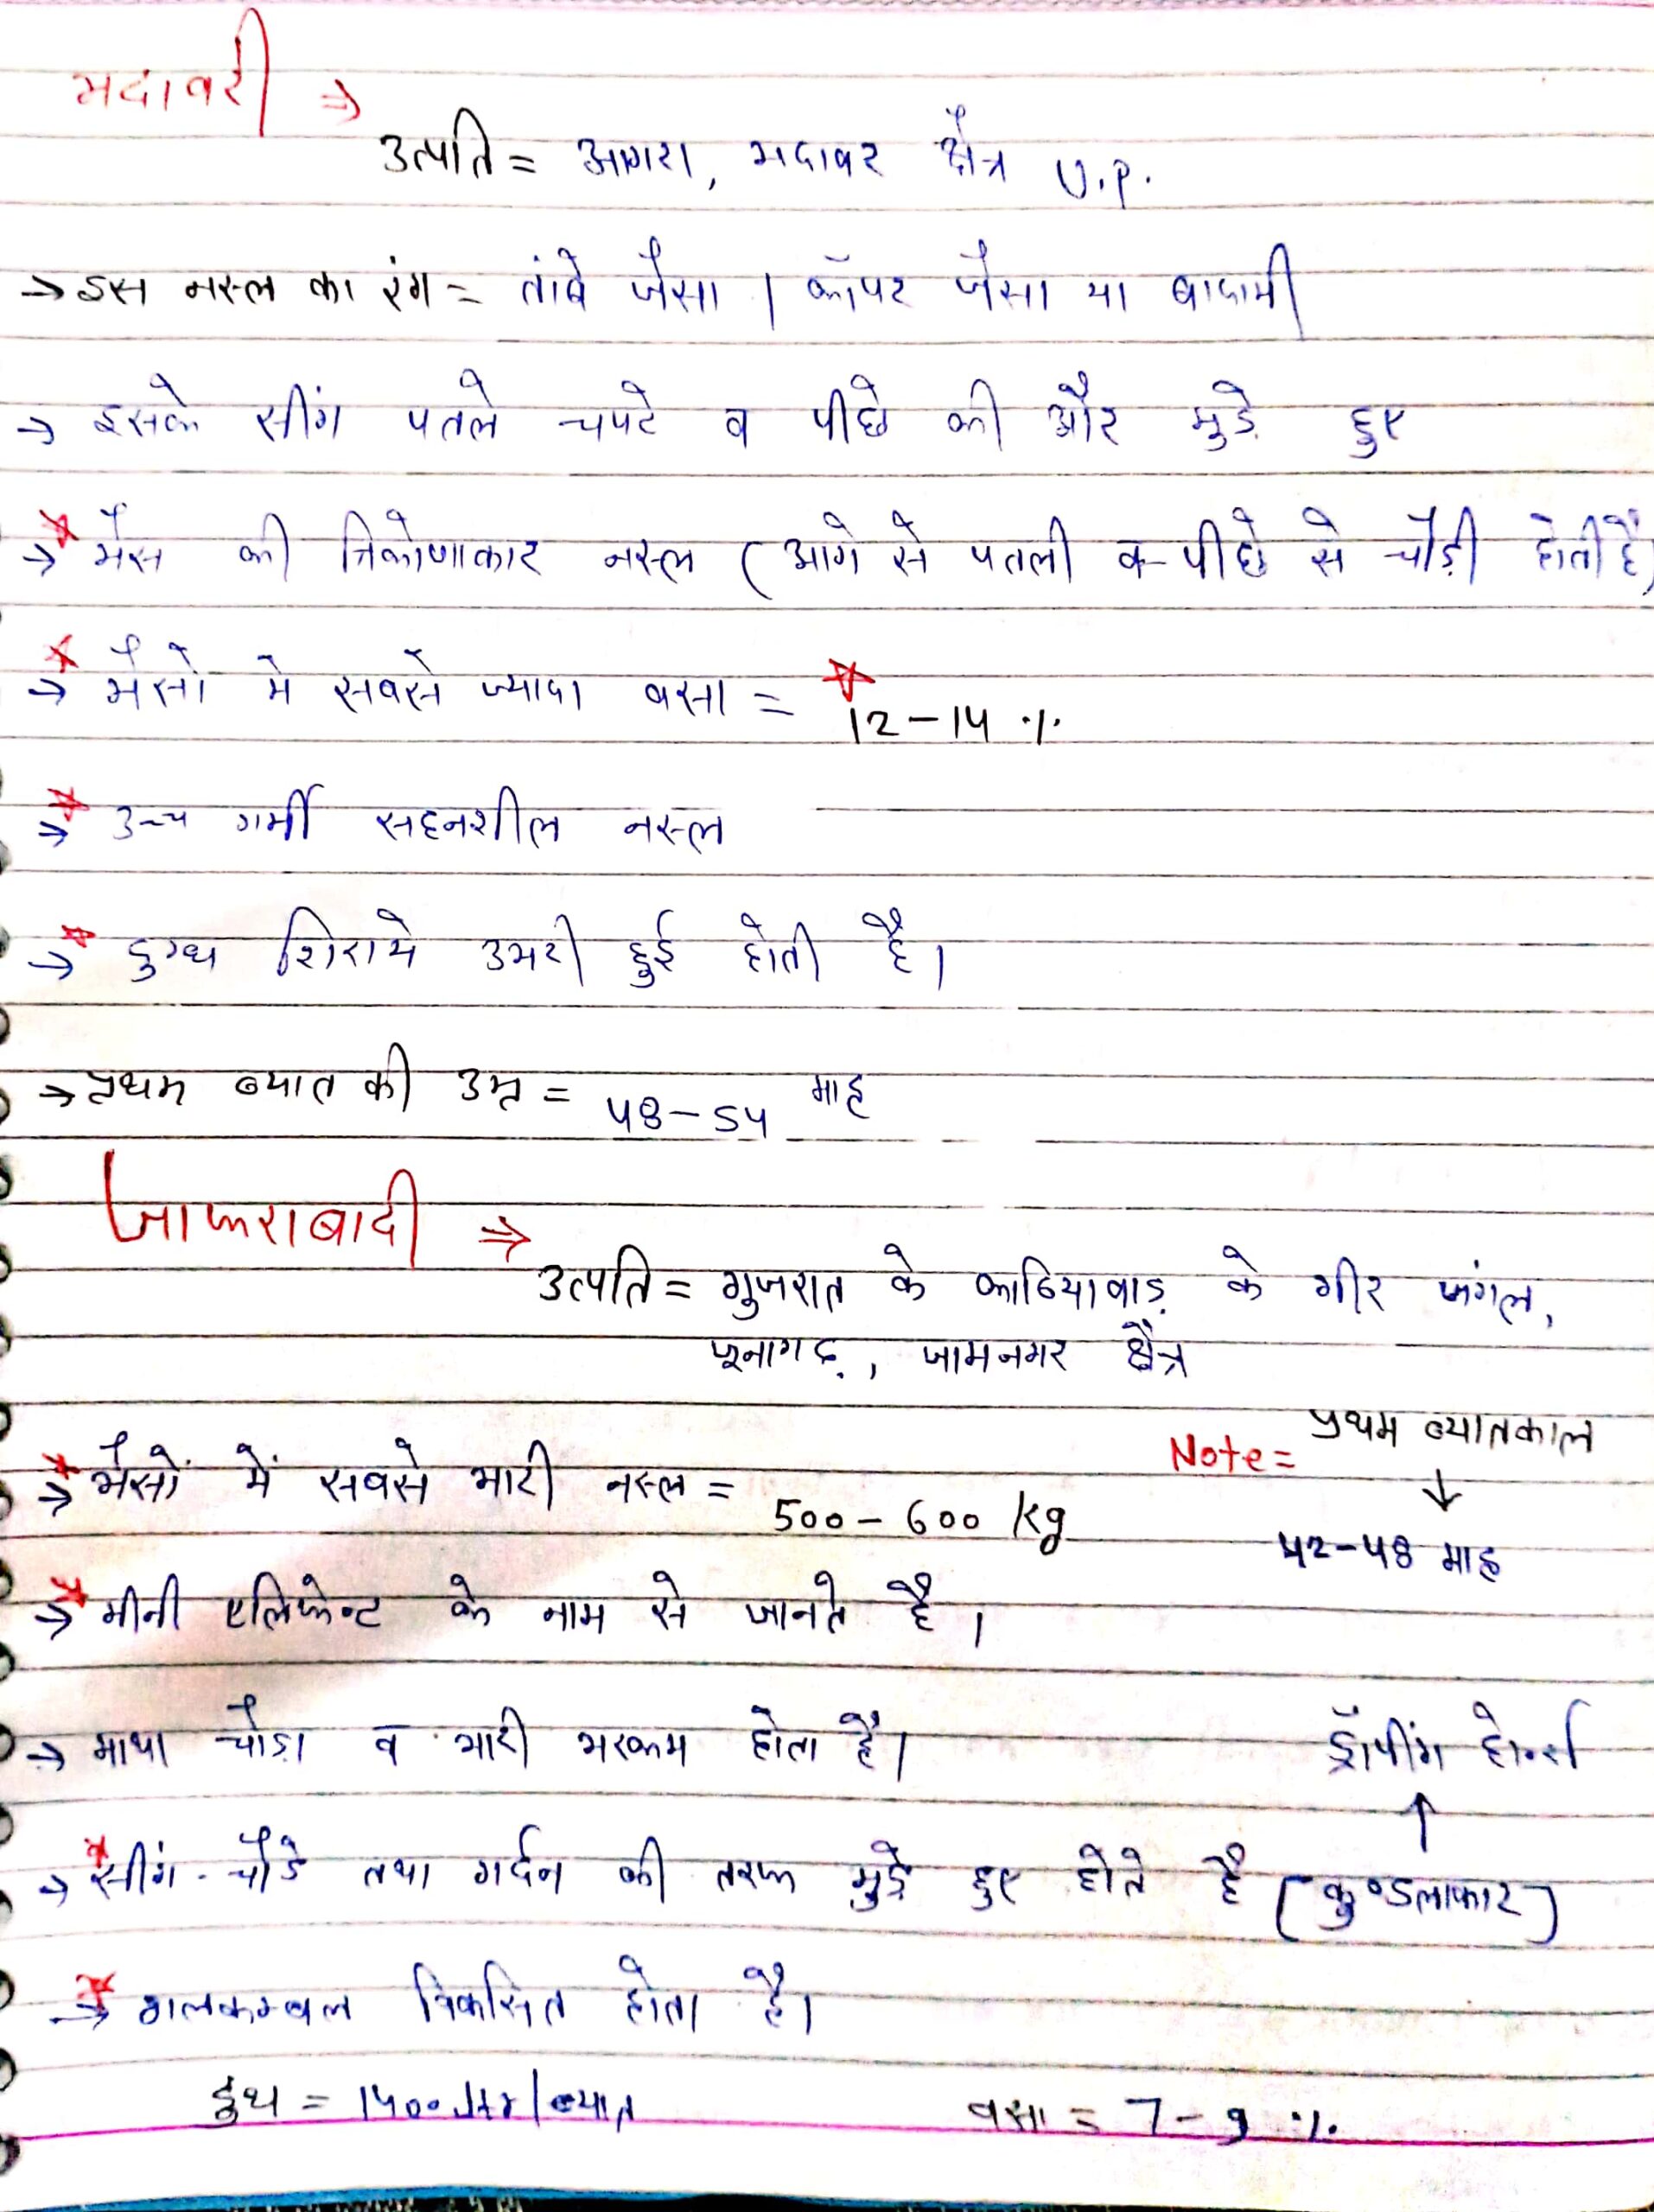 भदावरी ⇒
उत्पति = आगरा, भदावर क्षैत्र U.P.
→ इस नस्ल का रंग = तांबे जैसा / कॉपर जैसा या बादामी
→ इसके सींग पतले चपटे व पीछे की और मुड़े हुए
→ भैंस की त्रिकोणाकार नस्ल (आगे से पतली व पीछे से चौड़ी होती है)
→ भैंसो मे सबसे ज्यादा वसा = 12-14 %
→ उच्च गर्मी सहनशील नस्ल
→ दुग्ध शिराये उभरी हुई होती है।
→ प्रथम ब्यात की उम्र = 48-54 माह
जाफराबादी ⇒
उत्पति = गुजरात के काठियावाड़ के गीर जंगल,
जूनागढ़, जामनगर क्षैत्र
Note = प्रथम ब्यातकाल
↓
42-48 माह
→ भैंसों में सबसे भारी नस्ल = 500-600 kg
→ मीनी एलिफेन्ट के नाम से जानते है।
→ माथा चौड़ा व भारी भरकम होता है।
ड्रॉपींग होर्न्स
↑
→ सींग चौडे तथा गर्दन की तरफ मुड़े हुए होते है [कुण्डलाकार]
→ गलकम्बल विकसित होता है।
दुध = 1400 ltr/ब्यात वसा = 7-9 %